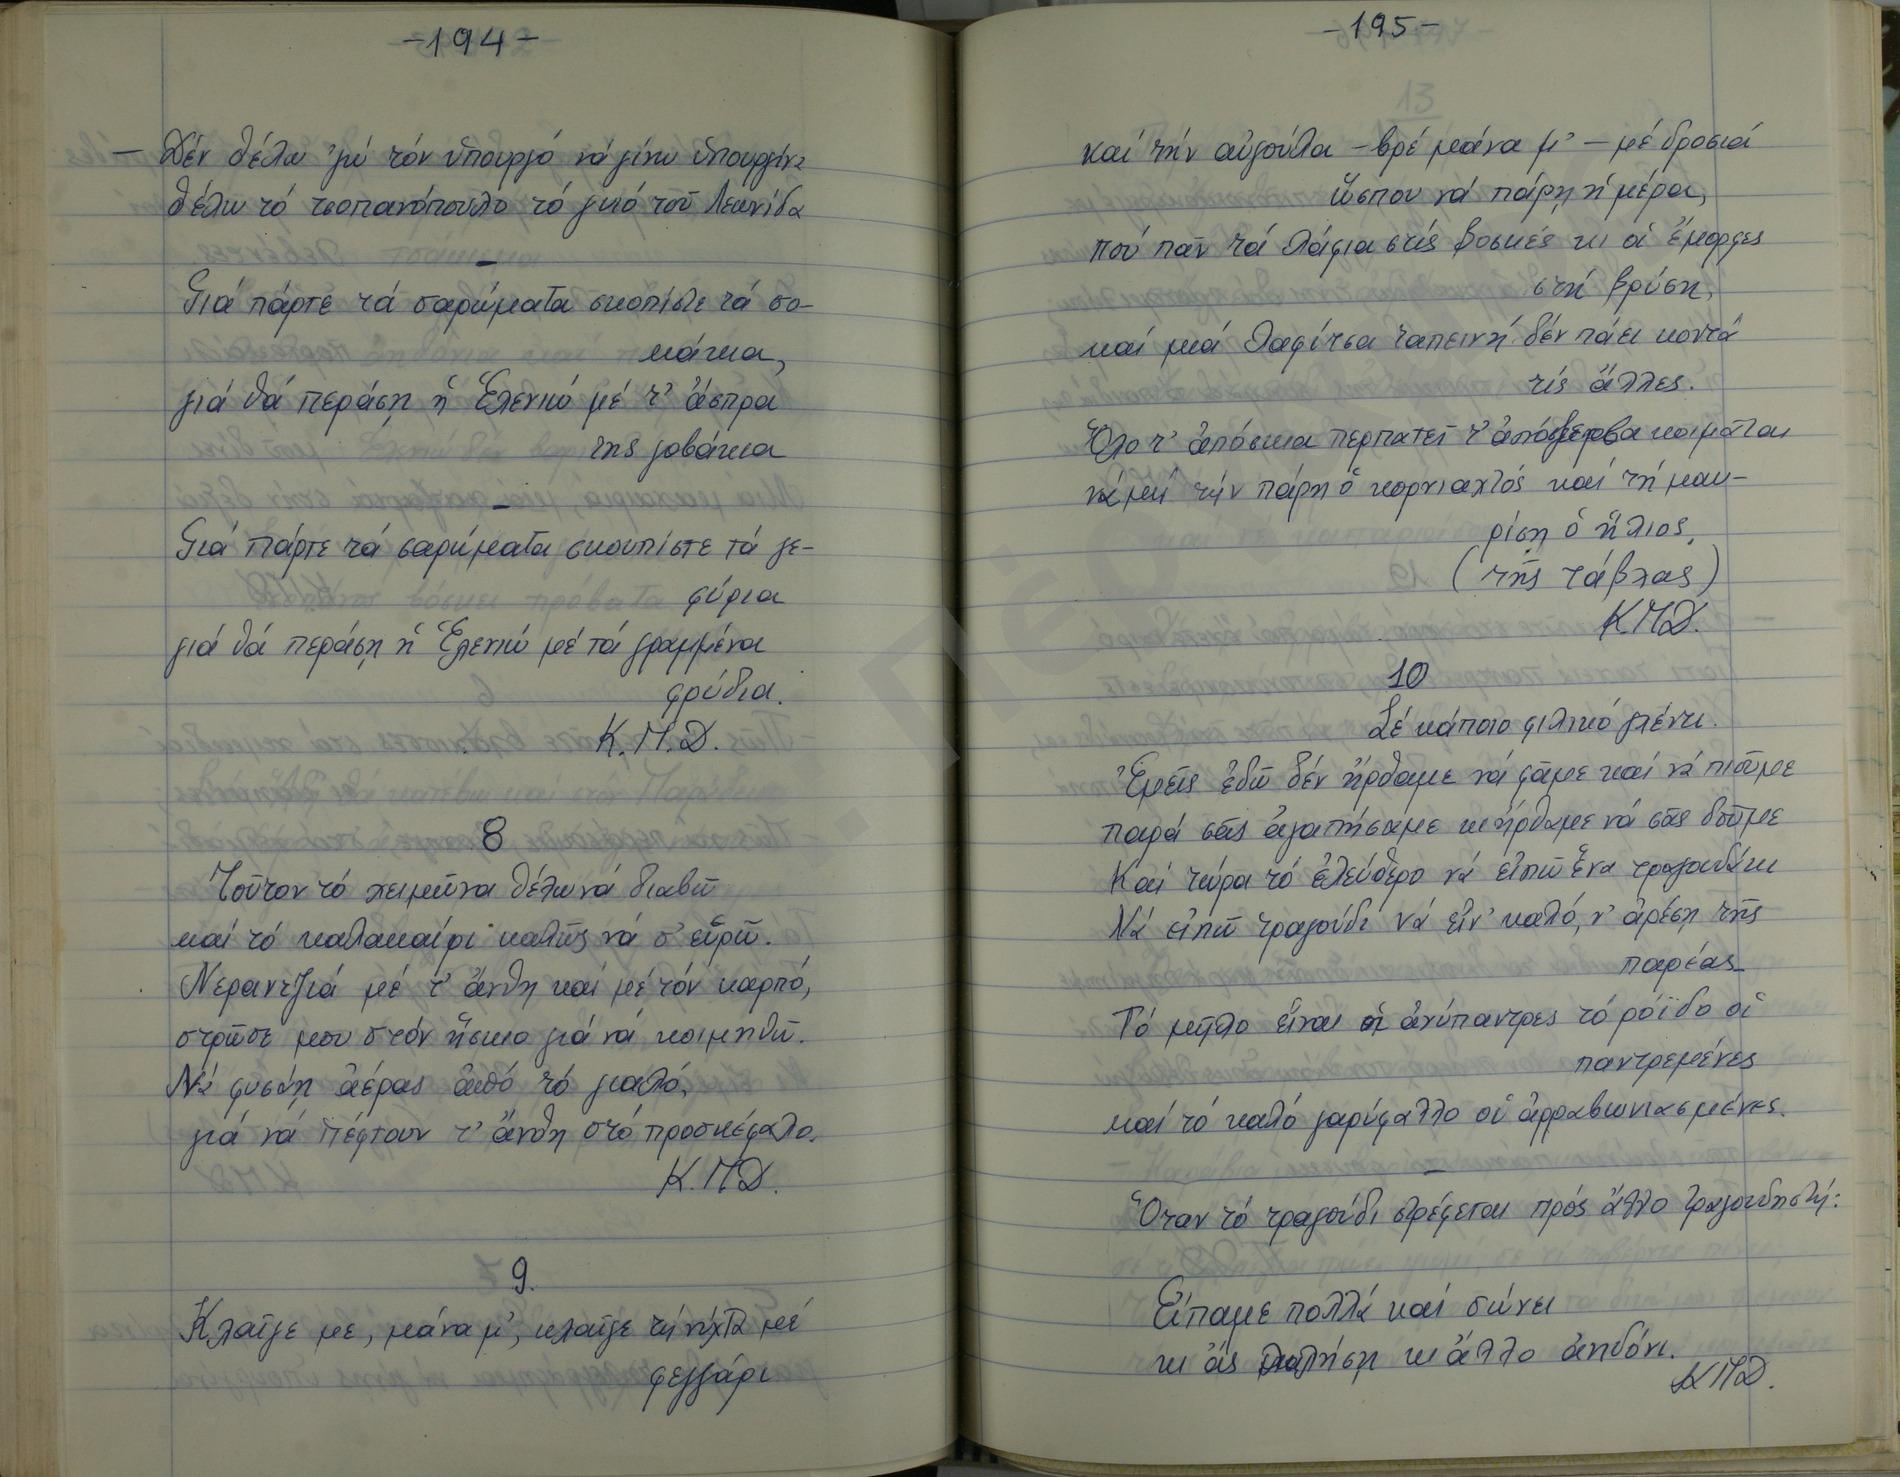 -194-
— Δέν θέλω 'γώ τόν ὑπουργό νά γίνω ὑπουργίνα
θέλω τό τσοπανόπουλο τό γυιό τοῦ Λεωνίδα
—
Γιά πάρτε τά σαρώματα σκοπίστε τά σο-
κάκια,
γιά θά περάσῃ ἡ Ἑλενιώ μέ τ' ἄσπρα
της γοβάκια
—
Γιά πάρτε τά σαρώματα σκουπίστε τά γε-
φύρια
γιά θά περάσῃ ἡ Ἑλενιώ μέ τά γραμμένα
φρύδια.
Κ.Π.Δ.
8
Τοῦτον τό χειμῶνα θέλω νά διαβῶ
καί τό καλοκαίρι καλῶς νά σ' εὑρῶ.
Νεραντζιά μέ τ' ἄνθη καί μέ τόν καρπό,
στρῶσε μου στόν ἥσκιο γιά νά κοιμηθῶ.
Νά φυσάῃ ἀέρας ἀπό τό γιαλό,
γιά νά πέφτουν τ' ἄνθη στό προσκέφαλο.
Κ.Π.Δ.
9.
Κλαῖγε με, μάνα μ', κλαῖγε τή νύχτα μέ
φεγγάρι
-195-
καί τήν αὐγούλα – βρέ μάνα μ' – μέ δροσιά
ὥσπου νά πάρῃ ἡ μέρα,
πού πᾶν τά λάφια στίς βοσκές κι οἱ ἔμορφες
στή βρύση,
καί μιά λαφίτσα ταπεινή δέν πάει κοντά
τίς ἄλλες.
Ὅλο τ' ἀπόσκια περπατεῖ τ' κοιμᾶται
νά μή τήν πάρῃ ὁ κορνιαχτός καί τή μαυ-
ρίσῃ ὁ ἥλιος.
(τῆς τάβλας)
ΚΠΔ.
10
Σέ κάποιο φιλικό γλέντι.
Ἐμεῖς ἐδῶ δέν ἤρθαμε νά φᾶμε καί νά πιοῦμε
παρά σᾶς ἀγαπήσαμε κι ἤρθαμε νά σᾶς δοῦμε
Καί τώρα τό ἐλεύθερο νά εἰπῶ ἕνα τραγουδάκι
Νά εἰπῶ τραγούδι νά εἶν' καλό, ν' ἀρέσῃ τῆς
παρέας
Τό μῆλο εἶναι οἱ ἀνύπαντρες τό ρόϊδο οἱ
παντρεμένες
καί τό καλό γαρύφαλλο οἱ ἀρραβωνιασμένες.
—
Ὅταν τό τραγούδι στρέφεται πρός ἄλλο τραγουδιστή:
Εἴπαμε πολλά καί σώνει
κι ἄς λαλήσῃ κι ἄλλο ἀηδόνι.
ΚΠΔ.